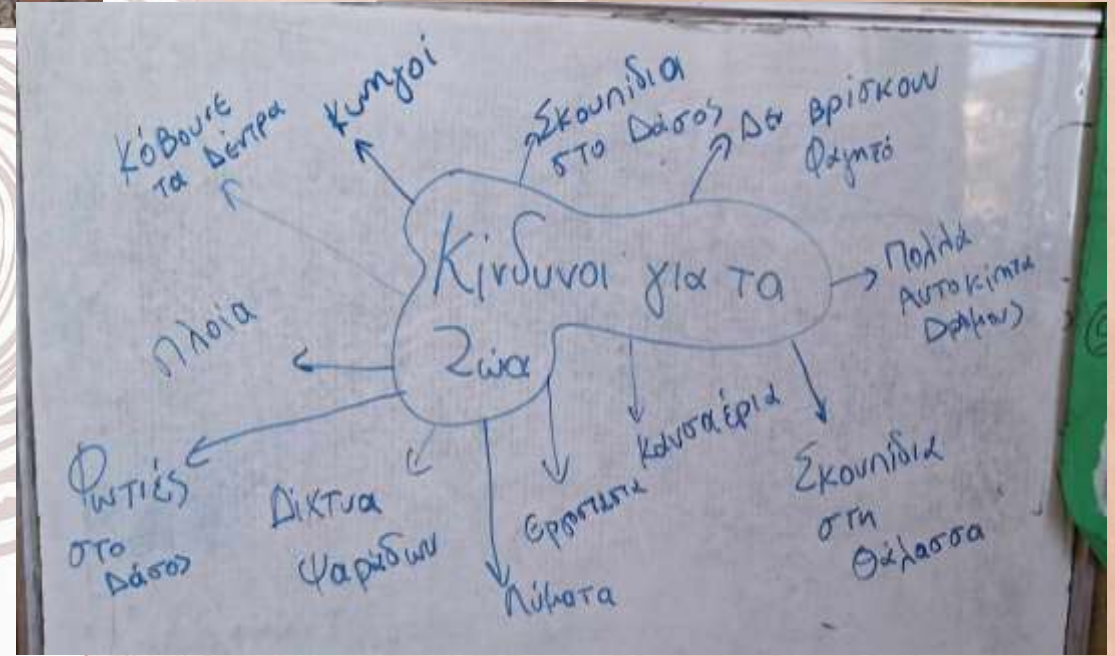 Κίνδυνοι για τα
Ζώα
Κυνηγοί
Σκουπίδια
στο Δάσος
Δεν βρίσκουν
Φαγητό
Πολλά
Αυτοκίνητα
Δρόμους
Σκουπίδια
στη
Θάλασσα
Καυσαέρια
Εργοστάσια
Λύματα
Δίχτυα
Ψαράδων
Φωτιές
στο
Δάσος
Πλοία
Κόβουνε
τα Δέντρα